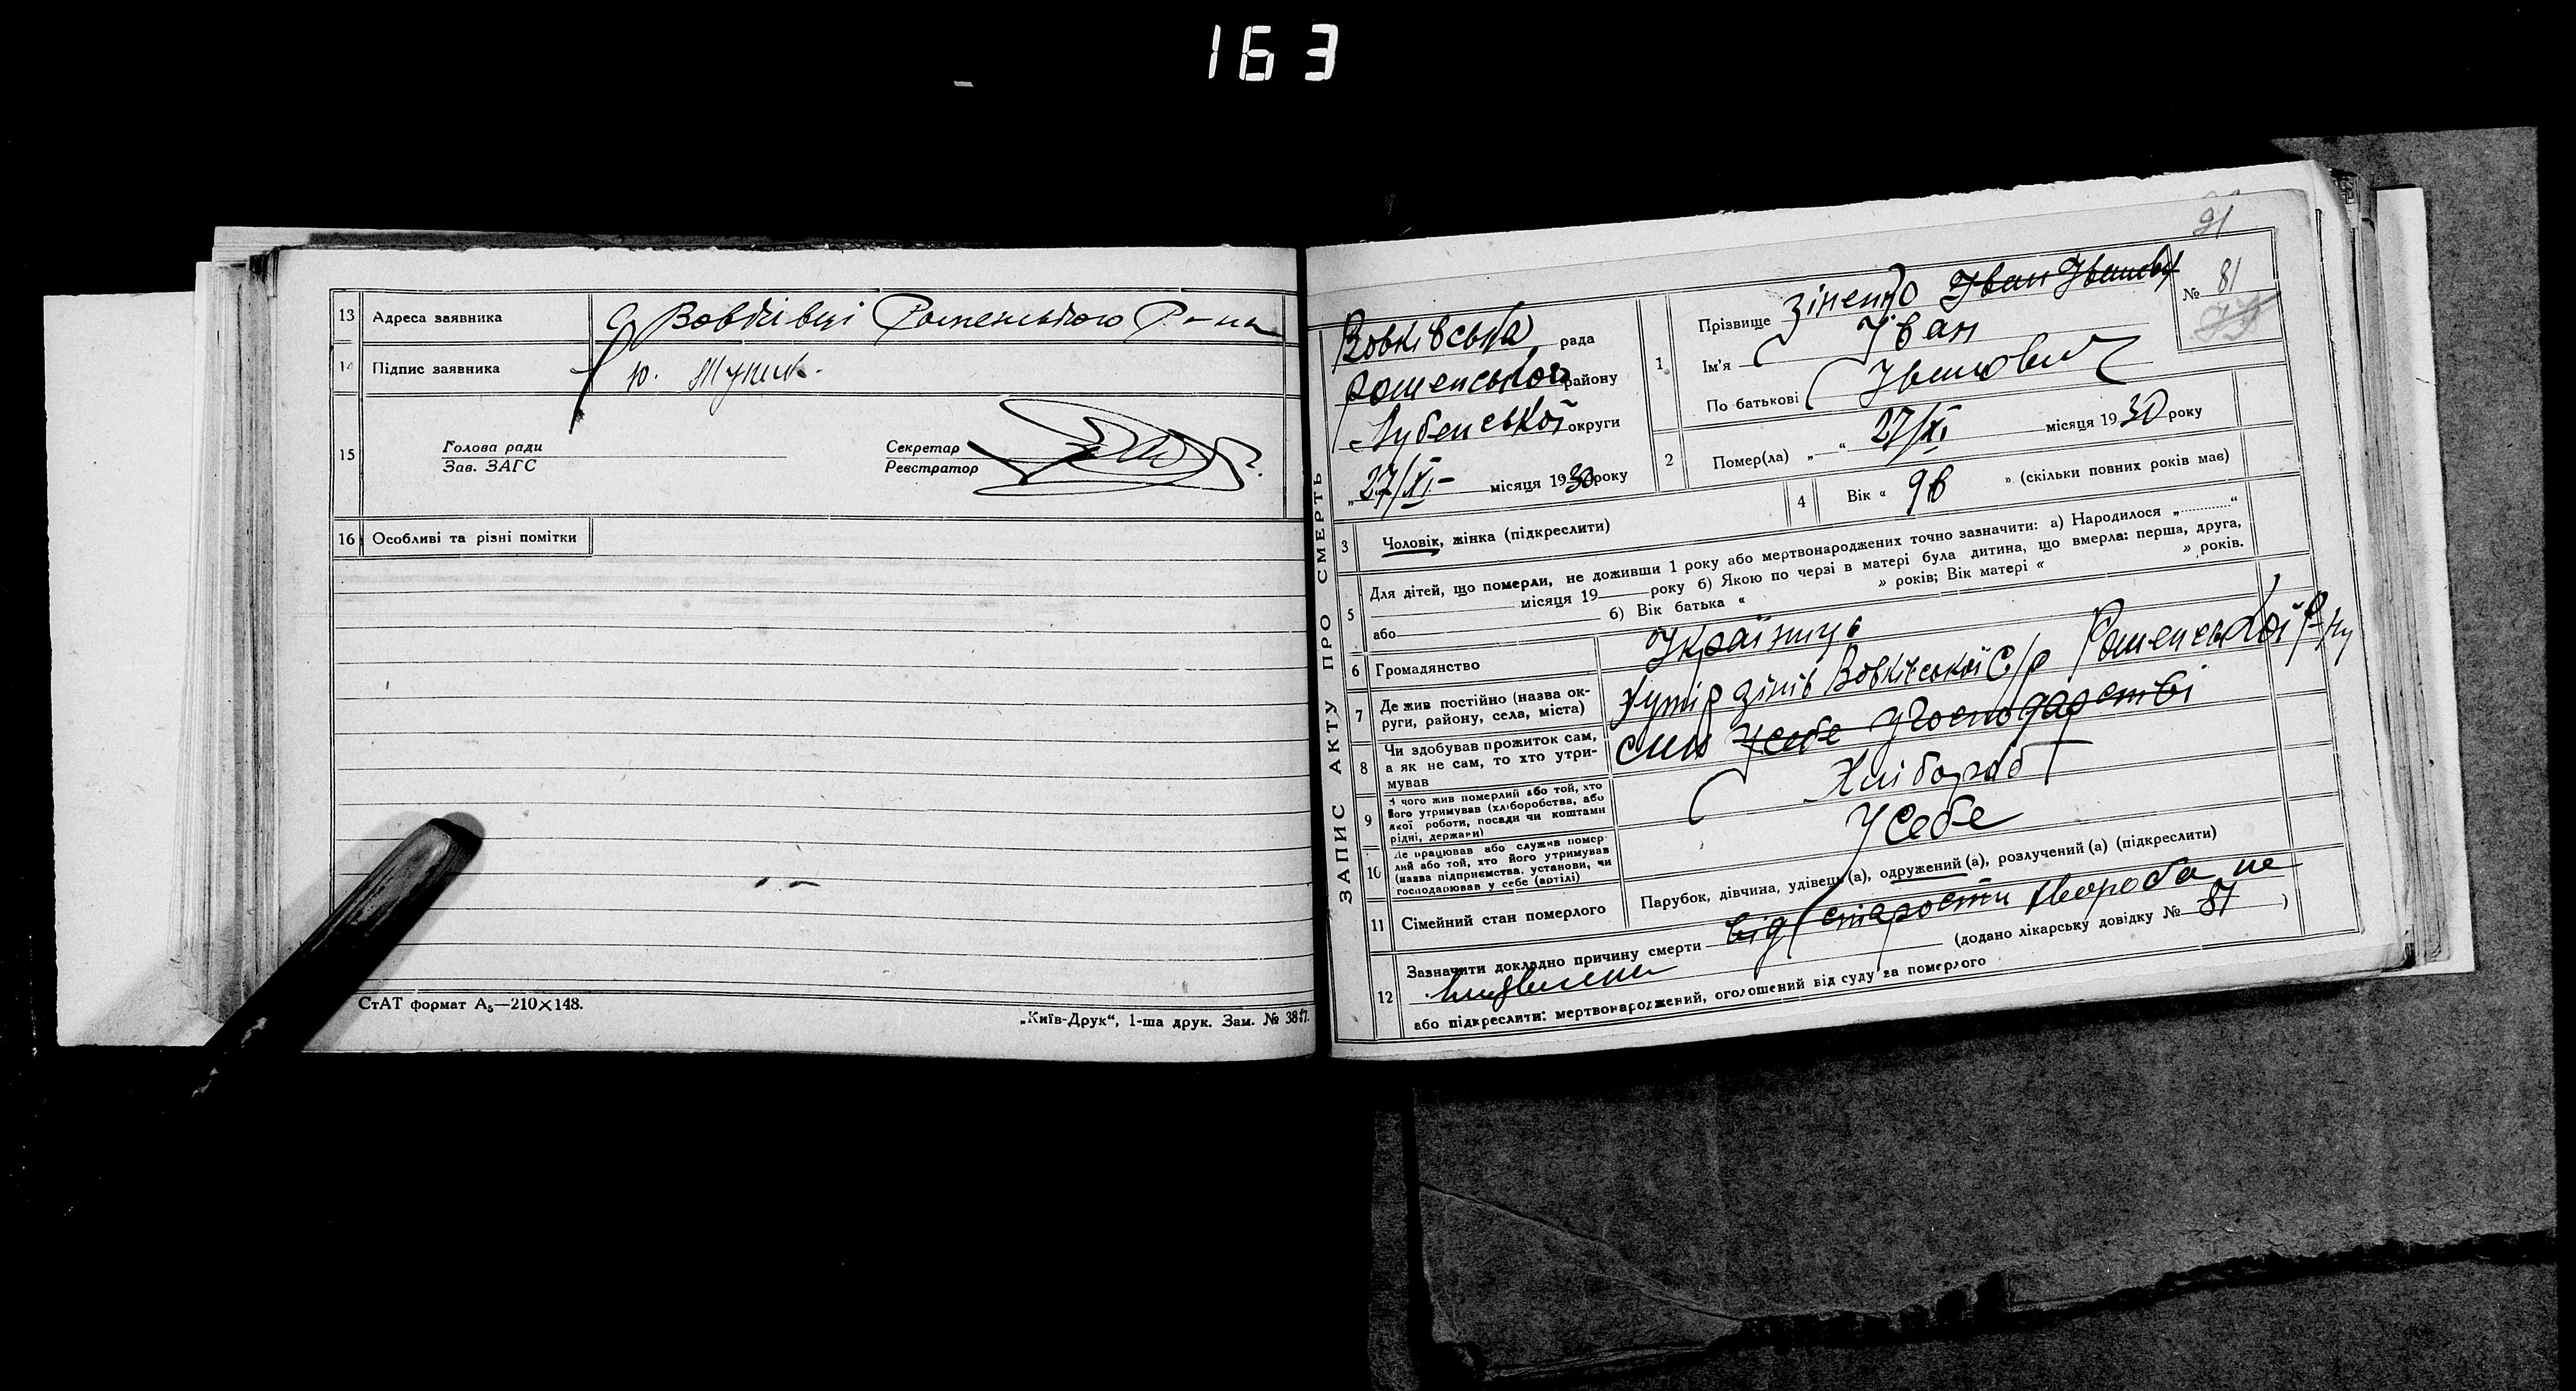 163
13 Адреса заявника С. Вовківці Роменського Р-на
14 Підпис заявника
15 Голова ради
Зав. ЗАГС
Секретар
Реєстратор
16 Особливі та різні помітки
СтАТ формат А₅—210×148.
„Київ-Друк“, 1-ша друк. Зам. № 3847.
91
ЗАПИС АКТУ ПРО СМЕРТЬ
Вовківська рада
Роменського району
Лубенської округи
„27/XI- місяця 1930 року
№ 81
1 Прізвище Зіненко Іван Іванович
Ім'я Іван
По батькові Іванович
2 Помер(ла) „ “ 27/XI місяця 1930 року
3 Чоловік, жінка (підкреслити)
4 Вік « 98 » (скільки повних років має)
5 Для дітей, що померли, не доживши 1 року або мертвонароджених точно зазначити: а) Народилося „............“
місяця 19 року б) Якою по черзі в матері була дитина, що вмерла: перша, друга,
або б) Вік батька « » років; Вік матері « » років.
6 Громадянство Українець
7 Де жив постійно (назва ок-
руги, району, села, міста) Хутір Зінів Вовківської С/р Роменської Р-ну
8 Чи здобував прожиток сам,
а як не сам, то хто утри-
мував син У себе у господарстві
9 З чого жив померлий або той, хто
його утримував (хліборобства, або
якої роботи, посади чи коштами
рідні, держави) Хлібороб
10 Де працював або служив помер-
лий або той, хто його утримував
(назва підприємства, установи, чи
господарював у себе (артілі) У себе
11 Сімейний стан померлого Парубок, дівчина, удівець (а), одружений (а), розлучений (а) (підкреслити)
12 Зазначити докладно причину смерти від старости хвороба не
виявлена (додано лікарську довідку № 87 )
або підкреслити: мертвонароджений, оголошений від суду за померлого